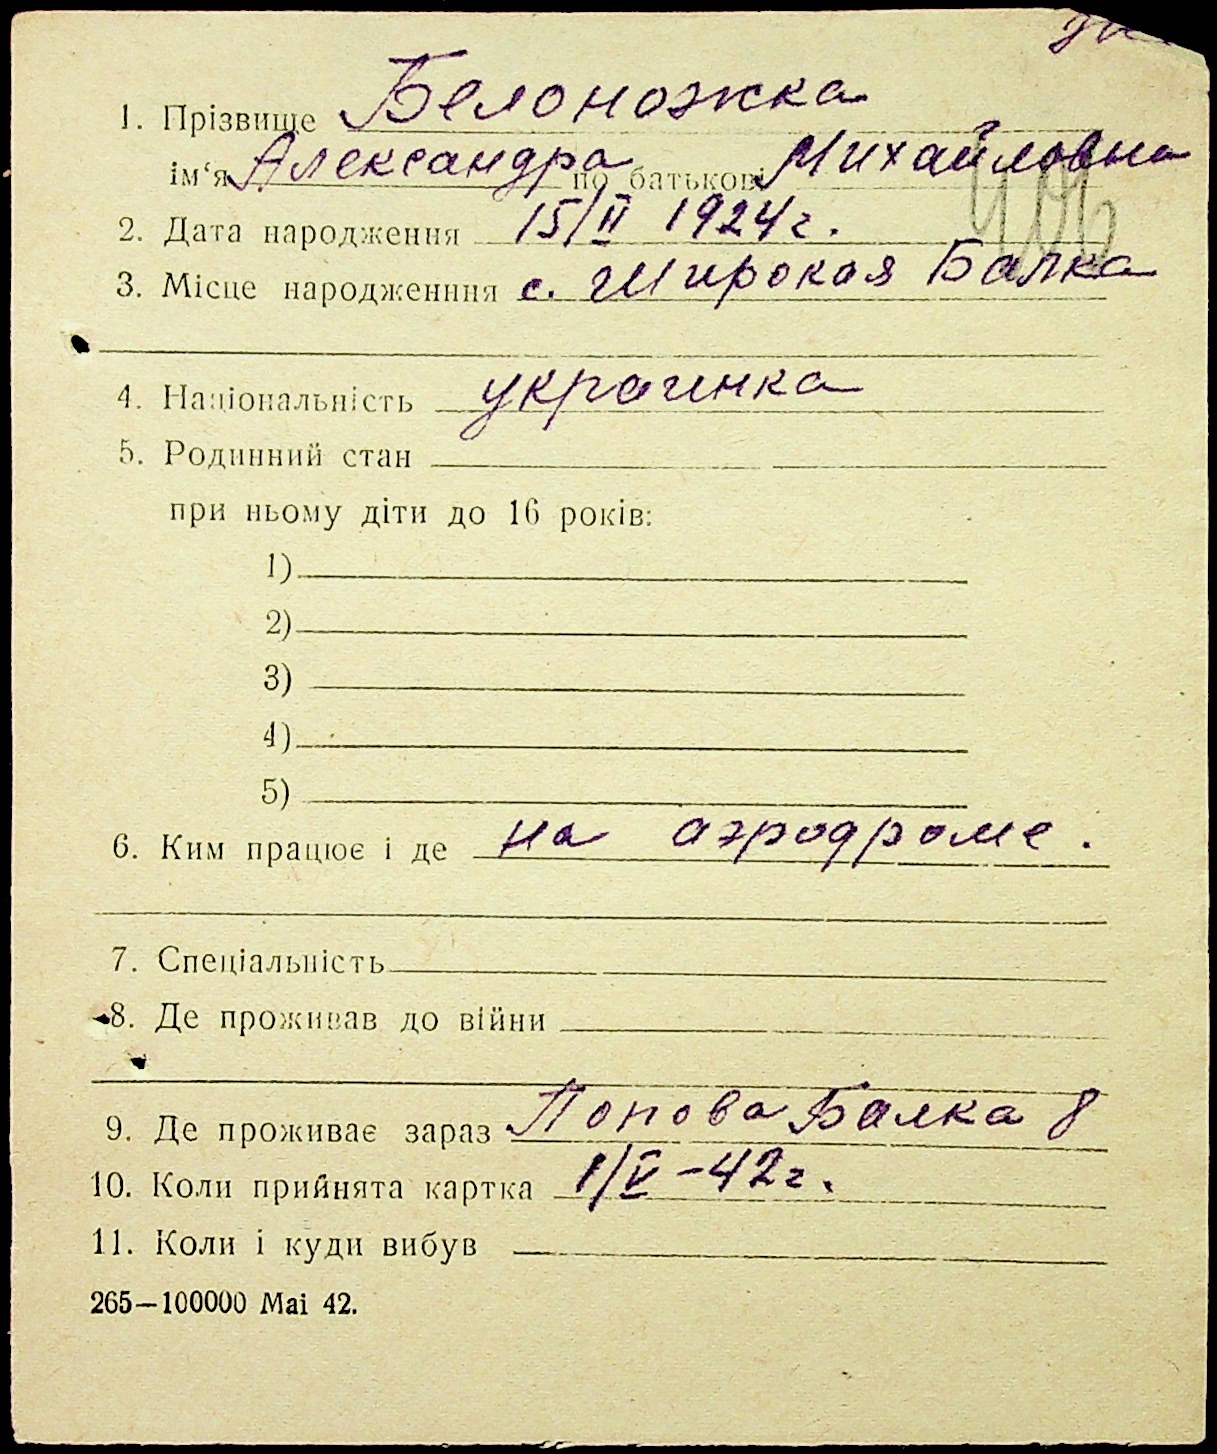 1. Прізвище Белоножка
ім‘я Александра по батькові Михайловна
406
2. Дата народження 15/II 1924 г.
3. Місце народженння с. Широкая Балка
4. Національність украинка
5. Родинний стан
при ньому діти до 16 років:
1)
2)
3)
4)
5)
6. Ким працює і де на аэродроме.
7. Спеціальність
8. Де проживав до війни
9. Де проживає зараз Попова Балка 8
10. Коли прийнята картка 1/V-42 г.
11. Коли і куди вибув
265—100000 Mai 42.